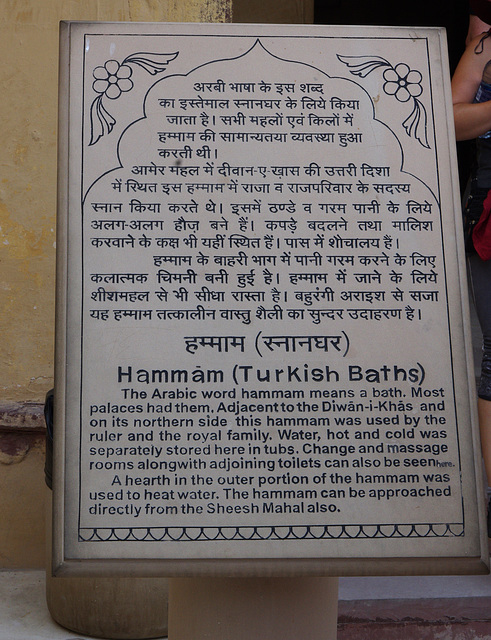 अरबी भाषा के इस शब्द
का इस्तेमाल स्नानघर के लिये किया
जाता है। सभी महलों एवं किलों में
हम्माम की सामान्यतया व्यवस्था हुआ
करती थी।
आमेर महल में दीवान-ए-ख़ास की उत्तरी दिशा
में स्थित इस हम्माम में राजा व राजपरिवार के सदस्य
स्नान किया करते थे। इसमें ठण्डे व गरम पानी के लिये
अलग-अलग हौज़ बने हैं। कपड़े बदलने तथा मालिश
करवाने के कक्ष भी यहीं स्थित हैं। पास में शौचालय है।
हम्माम के बाहरी भाग में पानी गरम करने के लिए
कलात्मक चिमनी बनी हुई है। हम्माम में जाने के लिये
शीशमहल से भी सीधा रास्ता है। बहुरंगी अराइश से सजा
यह हम्माम तत्कालीन वास्तु शैली का सुन्दर उदाहरण है।
हम्माम (स्नानघर)
Hammām (Turkish Baths)
The Arabic word hammam means a bath. Most
palaces had them. Adjacent to the Diwān-i-Khās and
on its northern side this hammam was used by the
ruler and the royal family. Water, hot and cold was
separately stored here in tubs. Change and massage
rooms alongwith adjoining toilets can also be seen here.
A hearth in the outer portion of the hammam was
used to heat water. The hammam can be approached
directly from the Sheesh Mahal also.